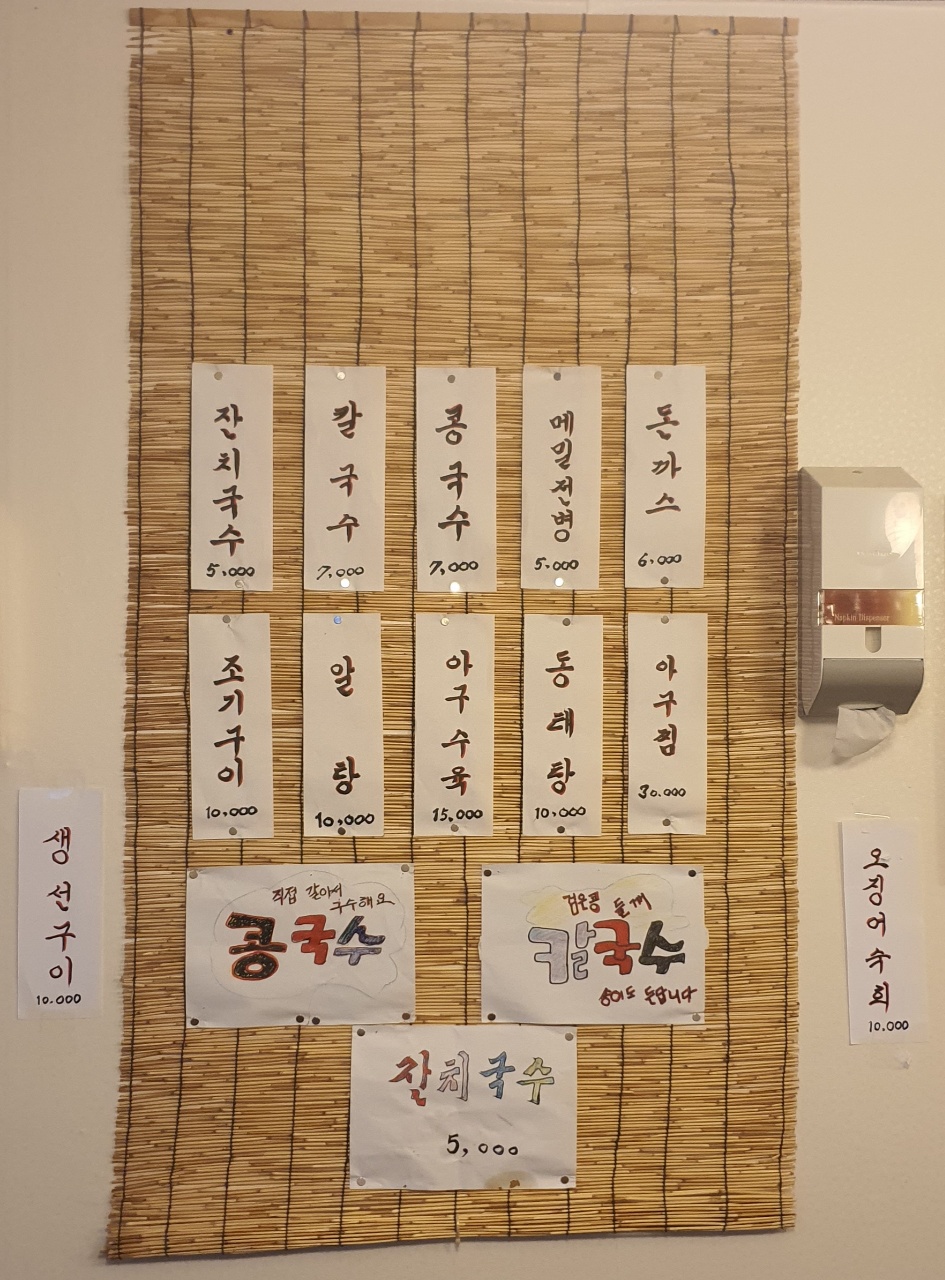 잔치국수
5,000
칼국수
7,000
콩국수
7,000
메밀전병
5,000
돈까스
6,000
조기구이
10,000
알탕
10,000
아구수육
15.000
동태탕
10,000
아구찜
30.000
생선구이
10.000
오징어숙회
10.000
직접 갈아서
구수해요
콩국수
검은콩 들깨
칼국수
송이도 듭니다
잔치국수
5,000
Napkin Dispenser